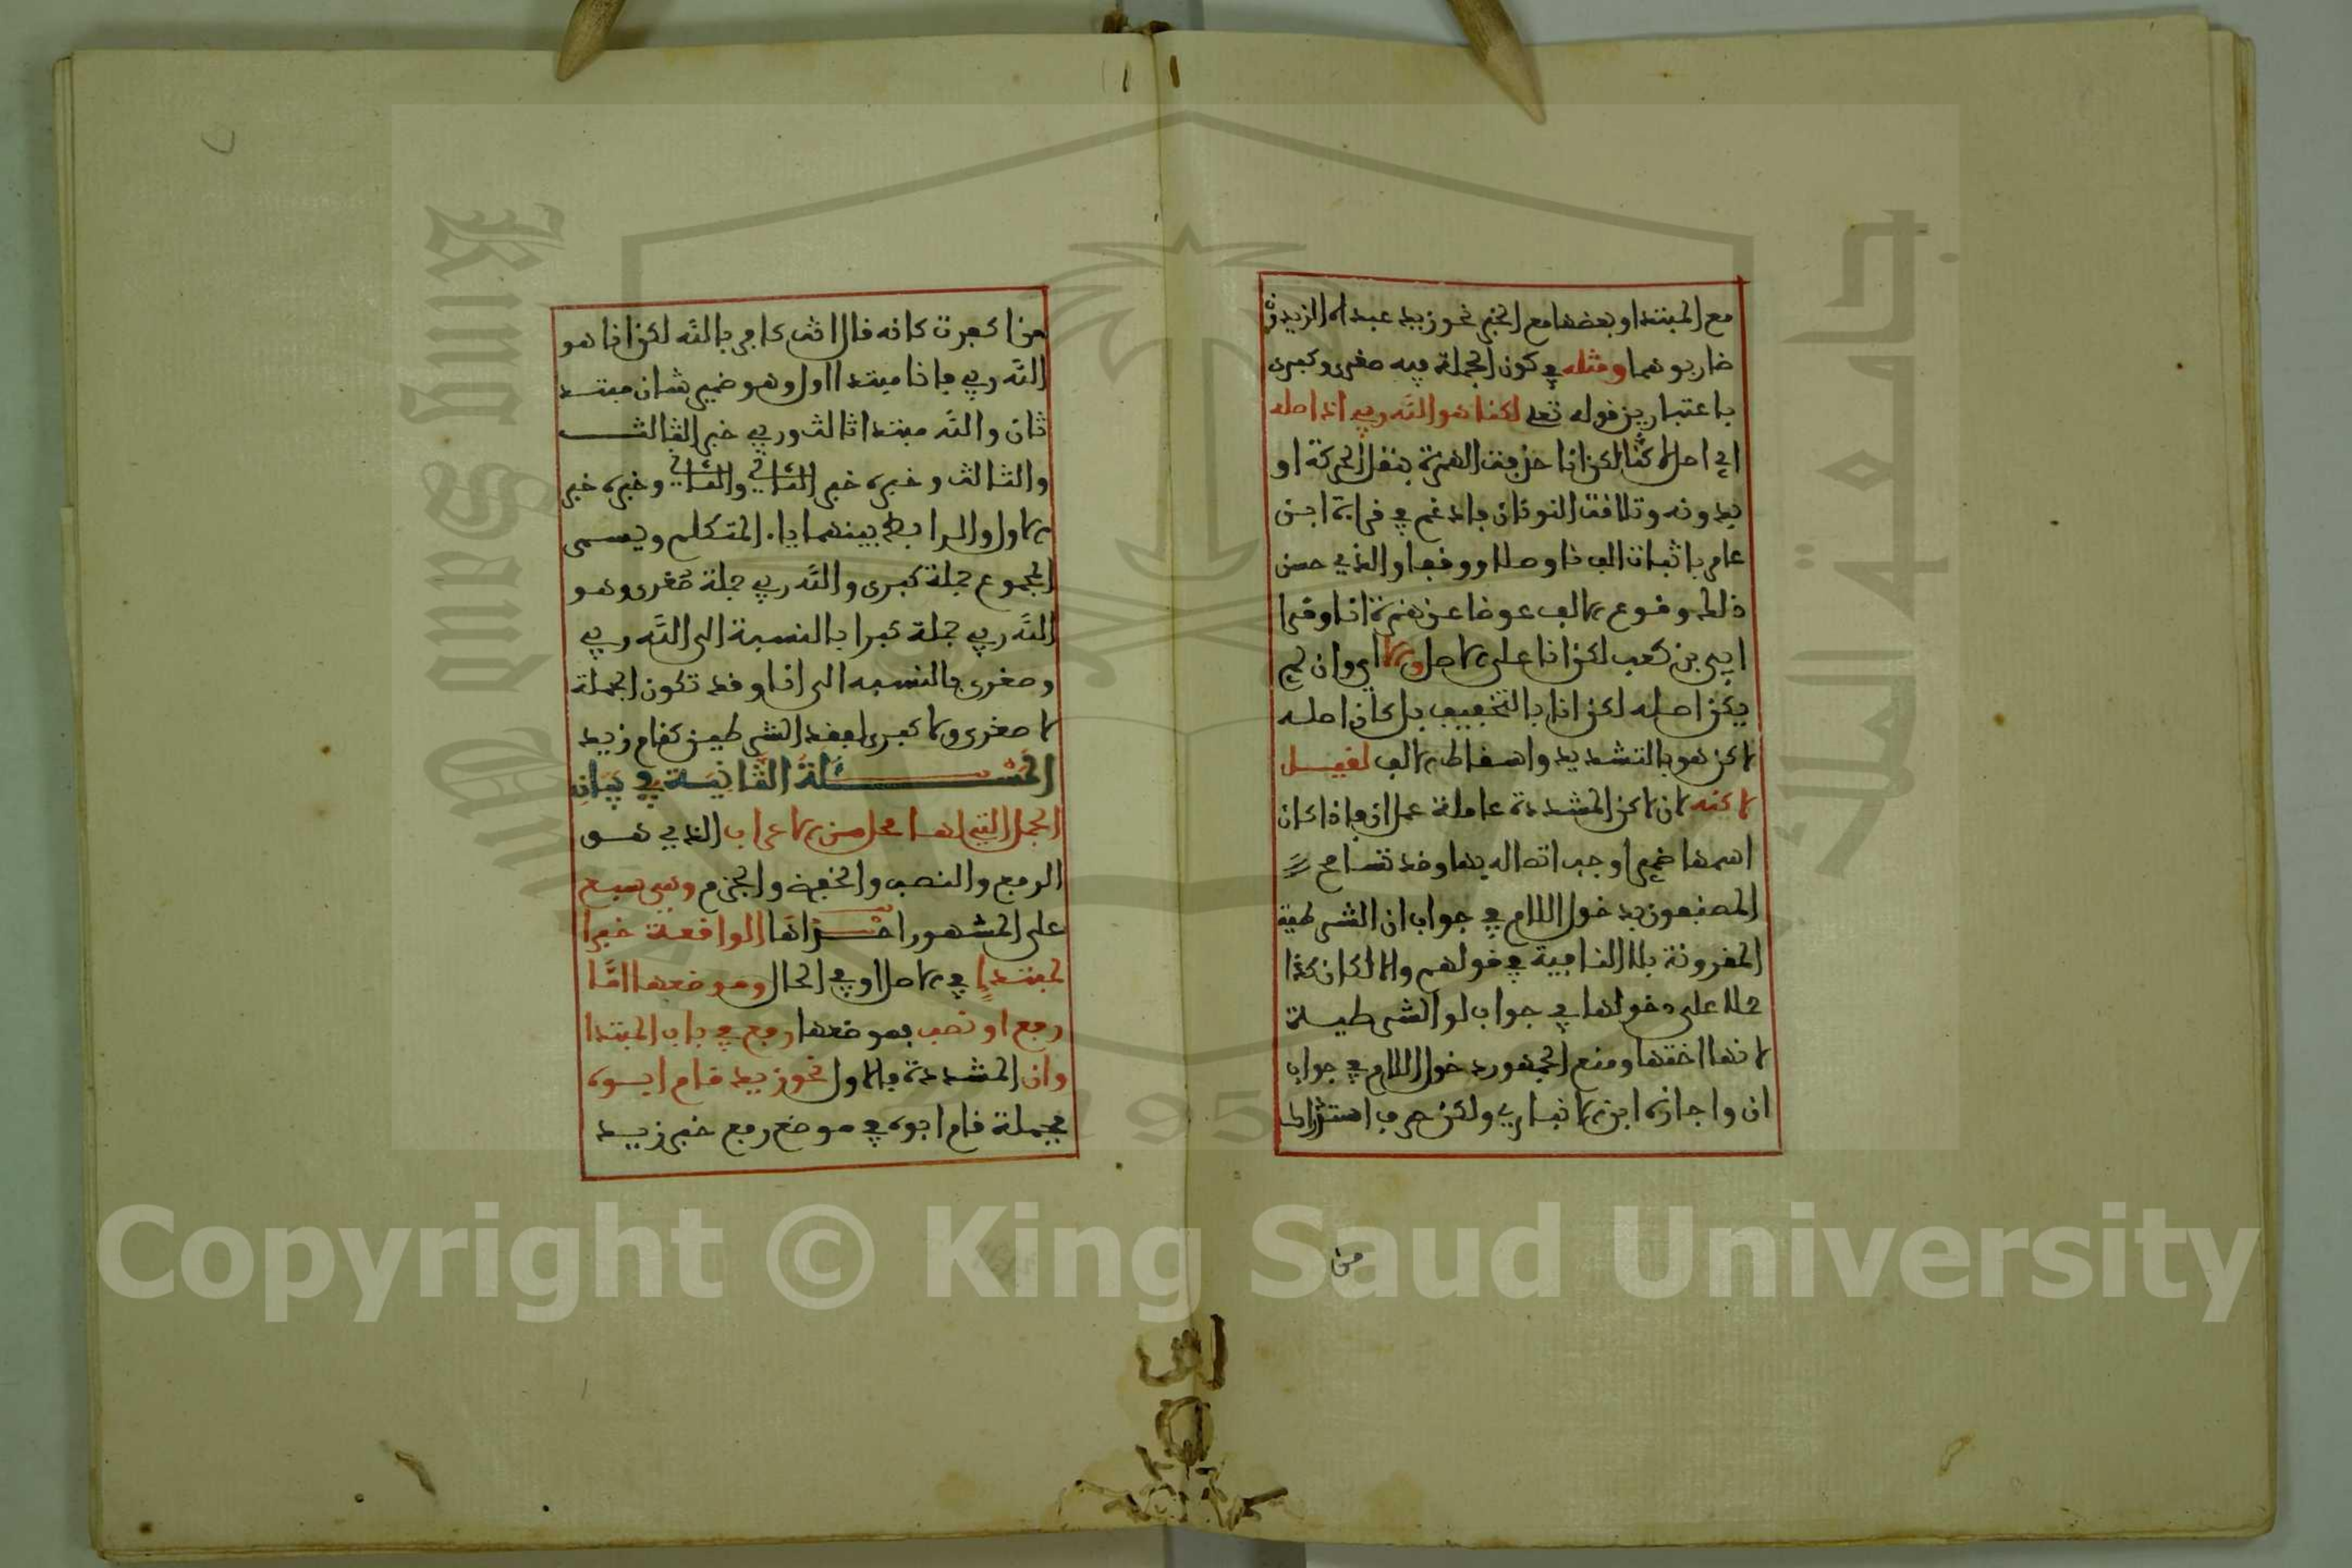 مع المبتدا وبعضها مع الخبر نحو زيد عبد الله الزيدون
ضاربوهما ومثله في كون الجملة فيه صغرى وكبرى
باعتبارين قوله تعلى لكنا هو الله ربي اذ اصله
اي اصل لاكنا لكن انا حذفت الهمزة بنقل الحركة او
بدونه وتلاقت النونان فادغم في قراءة ابن
عامر باثبات الف نا وصلا ووقفا والذي حسن
ذلك وقوع الالف عوضا عن همزة انا وقرا
ابي بن كعب لكن انا على الاصل والا اي وان لم
يكن اصله لكن انا بالتخفيف بل كان اصله
لاكن هو بالتشديد واسقاط الالف لقيل
لاكنه لان لاكن المشددة عاملة عمل ان فاذا كان
اسمها ضميرا وجب اتصاله بها وقد تسامح
المصنفون بدخول اللام في جواب ان الشرطية
المقرونة بلا النافية في قولهم والا لكان كذا
حملا على دخولها في جواب لو الشرطية
لانها اختها ومنع الجمهور دخول اللام في جواب
ان واجازه ابن الانباري ولكن حرف استدراك
من
من اكفرت كانه قال انت كافر بالله لكن انا هو
الله ربي فانا مبتدا اول وهو ضمير شان مبتدا
ثان والله مبتدا ثالث وربي خبر الثالث
والثالث وخبره خبر الثاني والثاني وخبره خبر
الاول والرابط بينهما ياء المتكلم ويسمى
المجموع جملة كبرى والله ربي جملة صغرى وهو
الله ربي جملة كبرا بالنسبة الى الله ربي
وصغرى بالنسبه الى انا وقد تكون الجملة
لا صغرى ولا كبرى لفقد الشرطين كقام زيد
المسئلة الثانية في بيان
الجمل التي لها محل من الاعراب الذي هو
الرفع والنصب والخفض والجزم وهي سبع
على المشهور احداها الواقعة خبرا
لمبتدإ في الاصل او في الحال وموضعها امّا
رفع او نصب فموضعها رفع في باب المبتدا
وان المشددة فالاول نحو زيد قام ابوه
فجملة قام ابوه في موضع رفع خبر زيد
Copyright © King Saud University
King Saud University
جامعة الملك سعود
195